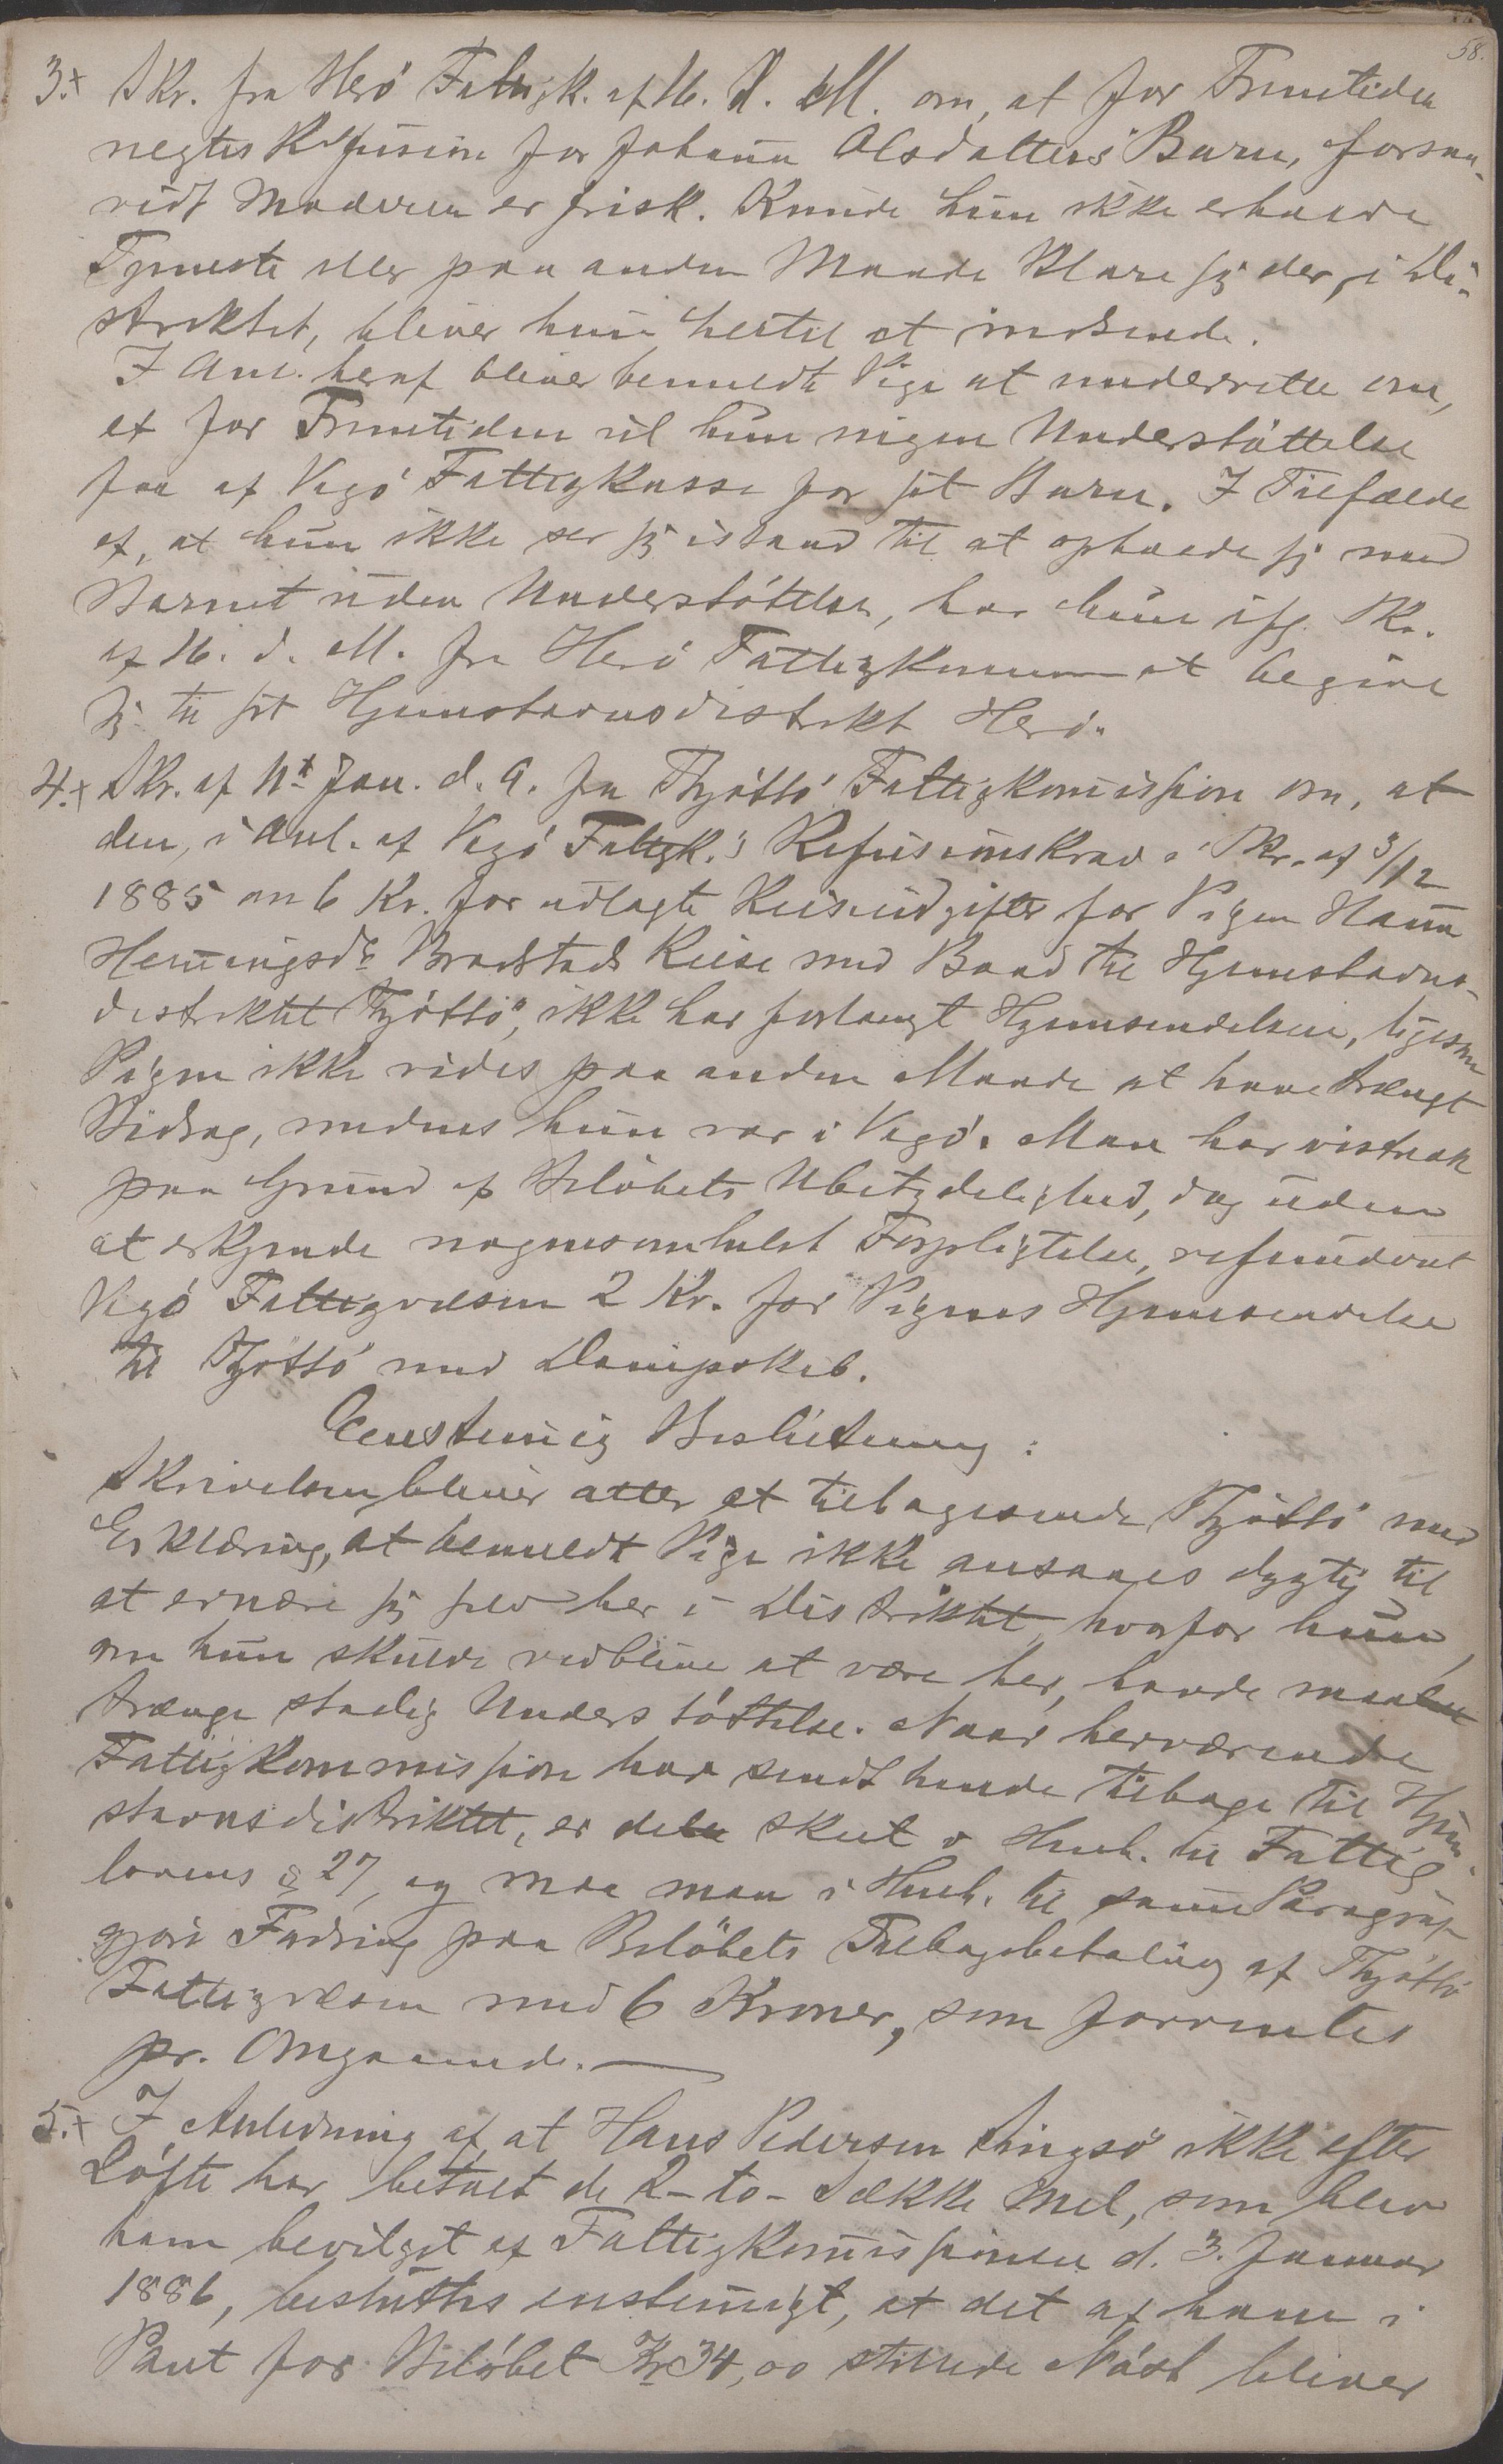 58.
3.+ Skr. fra Herö Fattigk. af 16. d. M. om, at for Fremtiden
negtes Refusion for Johanna Olsdatters Barn, forsaa-
vidt Moderen er frisk. Kunde hun ikke erholde
Tjeneste eller paa anden Maade klare sig der, i Di-
striktet, bliver hun hertil at indsende.
I Anl. heraf bliver bemeldte Pige at underrette om,
at for Fremtiden vil hun ingen Understöttelse
faa af Vegö Fattigkasse for sit Barn. I Tilfælde
af, at hun ikke ser sig istand til at opholde sig med
Barnet uden Understöttelse, har hun ifg. Skr.
af 16. d. M. fra Herö Fattigkommission at begive
sig til sit Hjemstavnsdistrikt Herö.
4.+ Skr. af 11te Jan. d. A. fra Thjöttö Fattigkommission om, at
den, i Anl. af Vegö Fattigk.s Refusionskrav i Skr. af 3/12
1885 om 6 Kr. for udlagte Reiseudgifter for Pigen Hanna
Henningsdr Bradstads Reise med Baad til Hjemstavns-
distriktet Thjöttö, ikke har forlangt Hjemsendelsen, ligesom
Pigen ikke vides paa anden Maade at have trængt
Bidrag, medens hun var i Vegö. Man har vistnok
paa Grund af Belöbets Ubetydelighed, dog uden
at erkjende nogensomhelst Forpligtelse, refunderet
Vegö Fattigvæsen 2 Kr. for Pigens Hjemsendelse
til Thjöttö med Dampskib.
Eenstemmig Beslutning:
Skrivelsen bliver atter at tilbagesende Thjöttö med
Erklæring, at bemeldt Pige ikke ansaaes dygtig til
at ernære sig selv her i Distriktet, hvorfor hun,
om hun skulde vedblive at være her, havde maattet
trænge stadig Understöttelse. Naar herværende
Fattigkommission har sendt hende tilbage til Hjem-
stavnsdistriktet, er dette skeet i Henh. til Fattig-
lovens § 27, og maa man i Henh. til samme Paragraf
gjöre Fordring paa Belöbets Tilbagebetaling af Thjöttö
Fattigvæsen med 6 Kroner, som forventes
pr. Omgaaende.
5.+ I Anledning af, at Hans Pedersen ikke efter
Löfte har betalt de 2 - to - Sække Mel, som blev
ham bevilget af Fattigkommissionen d. 3. Januar
1886, besluttes enstemmigt, at det af ham i
Pant for Belöbet Kr 34,00 stillede Nöst bliver